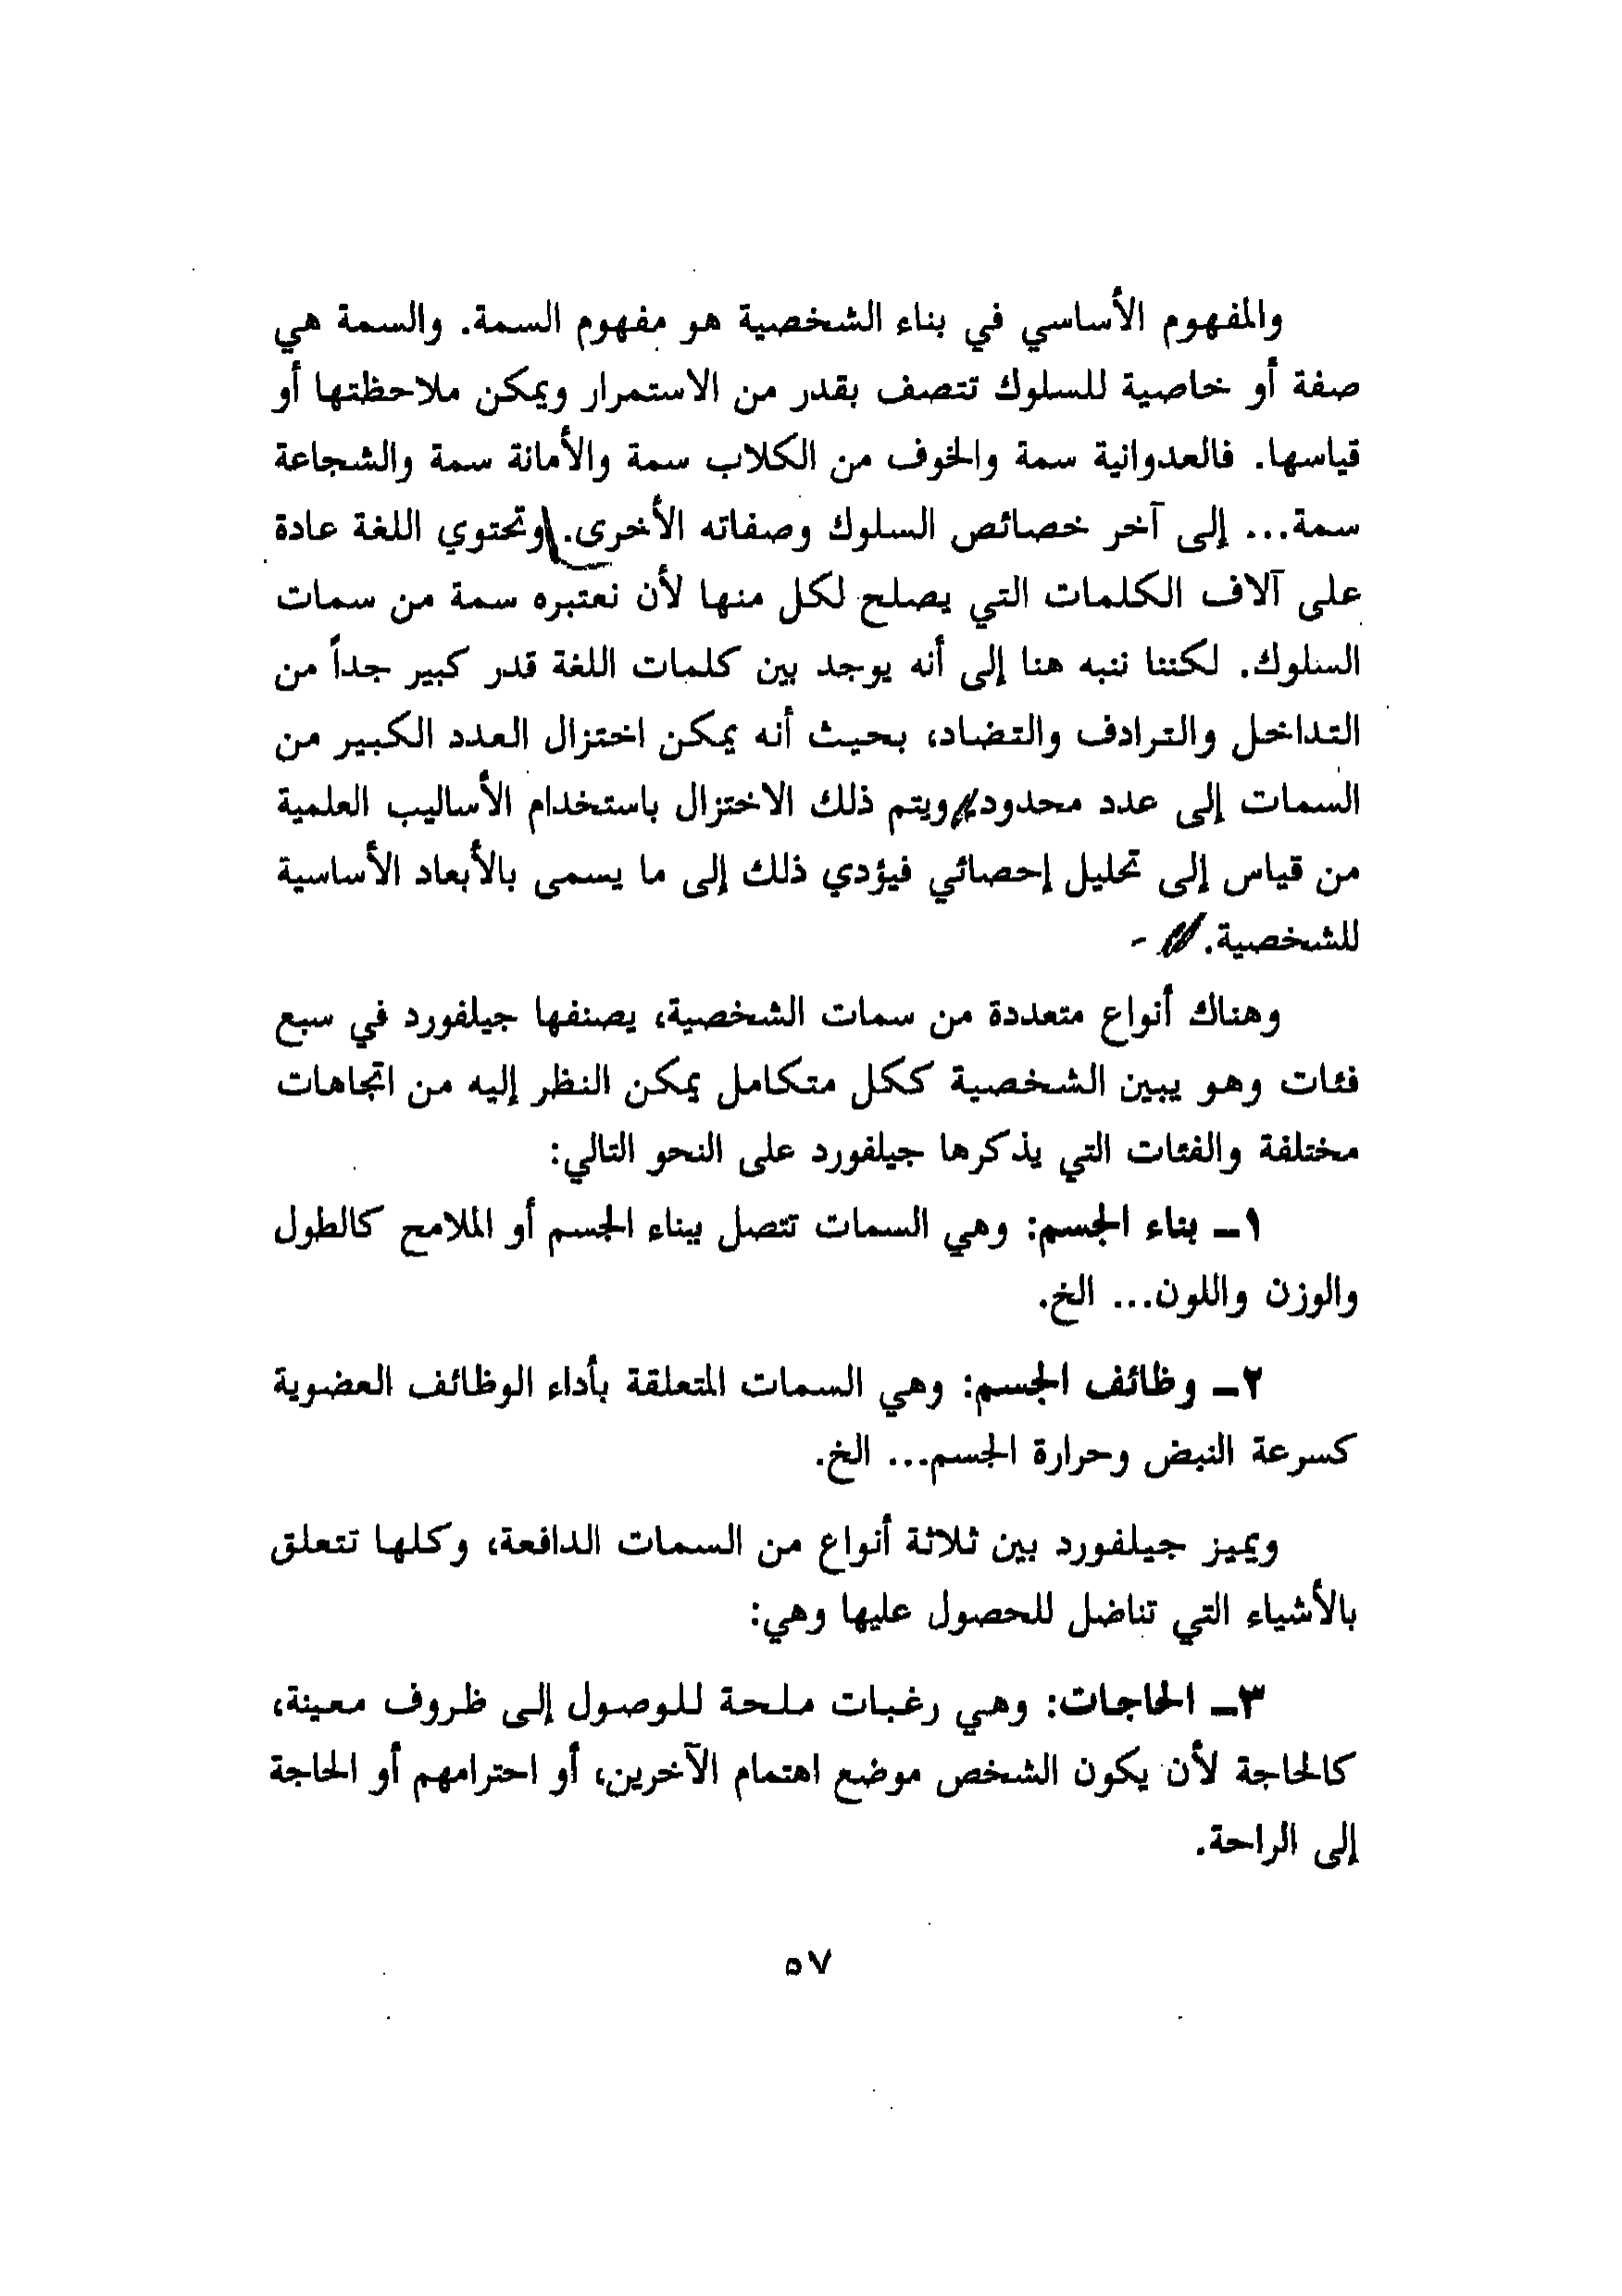 والمفهوم الأساسي في بناء الشخصية هو مفهوم السمة. والسمة هي
صفة أو خاصية للسلوك تتصف بقدر من الاستمرار ويمكن ملاحظتها أو
قياسها. فالعدوانية سمة والخوف من الكلاب سمة والأمانة سمة والشجاعة
سمة... إلى آخر خصائص السلوك وصفاته الأخرى. وتحتوي اللغة عادة
على آلاف الكلمات التي يصلح لكل منها لأن نعتبره سمة من سمات
السلوك. لكننا ننبه هنا إلى أنه يوجد بين كلمات اللغة قدر كبير جداً من
التداخل والترادف والتضاد، بحيث أنه يمكن اختزال العدد الكبير من
السمات إلى عدد محدود ويتم ذلك الاختزال باستخدام الأساليب العلمية
من قياس إلى تحليل إحصائي فيؤدي ذلك إلى ما يسمى بالأبعاد الأساسية
للشخصية.
وهناك أنواع متعددة من سمات الشخصية، يصنفها جيلفورد في سبع
فئات وهو يبين الشخصية ككل متكامل يمكن النظر إليه من اتجاهات
مختلفة والفئات التي يذكرها جيلفورد على النحو التالي:
١ــ بناء الجسم: وهي السمات تتصل ببناء الجسم أو الملامح كالطول
والوزن واللون... الخ.
٢ــ وظائف الجسم: وهي السمات المتعلقة بأداء الوظائف العضوية
كسرعة النبض وحرارة الجسم... الخ.
ويميز جيلفورد بين ثلاثة أنواع من السمات الدافعة، وكلها تتعلق
بالأشياء التي تناضل للحصول عليها وهي:
٣ــ الحاجات: وهي رغبات ملحة للوصول إلى ظروف معينة،
كالحاجة لأن يكون الشخص موضع اهتمام الآخرين، أو احترامهم أو الحاجة
إلى الراحة.
٥٧